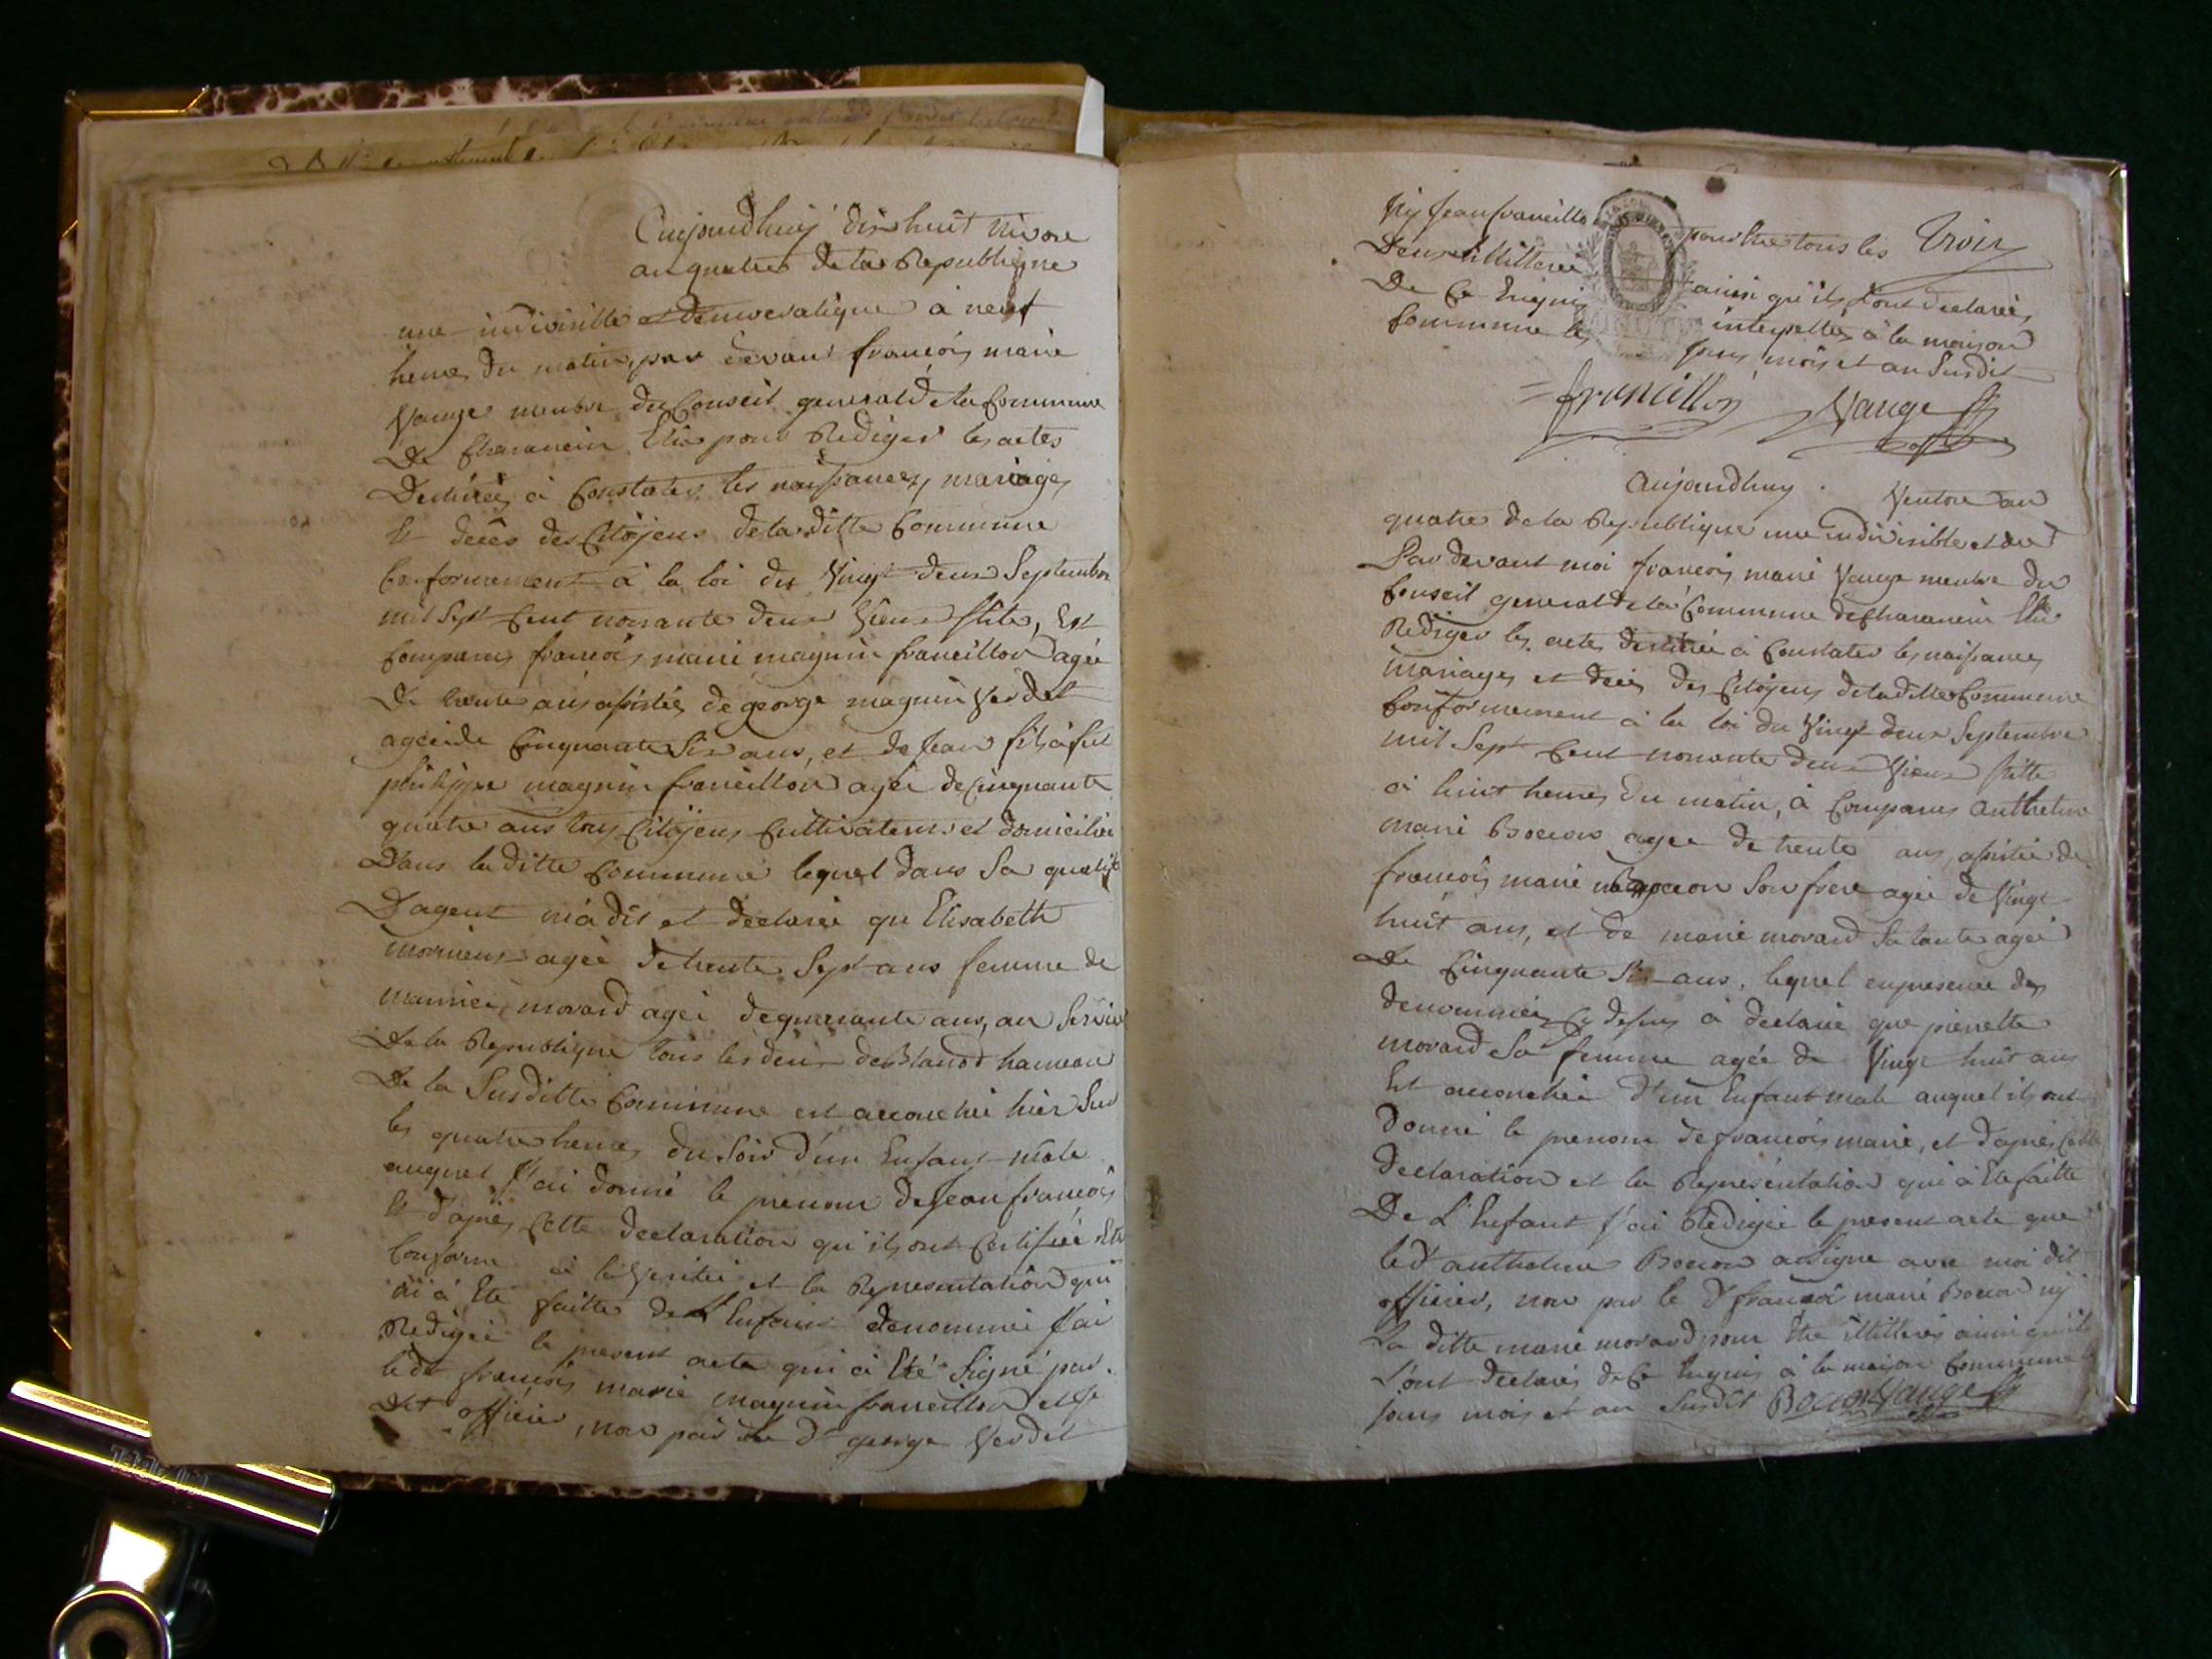 Aujourdhuij dix huit Nivose
an quatre de la Republique
une indivisible et democratique à neuf
heures du matin, par devant françois marie
Vauge menbre du Conseil general de la Commune
De Charancin Elû pour Rediger les actes
Destinés à Constater les naissances, mariages
Et décès des Citoÿens de la ditte Commune
Conformement à la loi du Vingt deux Septembre
mil Sept Cent nonante deux Vieux Stile, Est
Comparus françois marie magnin francillon agée
De trente ans assistés de george magnin Verdet
agée de Cinquante Six ans, et de Jean fils à fut
philippe magnin francillon agée de Cinquante
quatre ans tous Citoÿens Cultivateurs et domiciliés
Dans la ditte Commune lequel dans Sa qualité
D'agent m'a dit et declarée qu'Elisabeth
agée de trente Sept ans femme de
maurice morard agée de quarante ans, au Service
De la Republique tous les deux de hameau
De la Susditte Commune est accouchée hier Sur
les quatre heures du Soir d'un Enfant male
auquel J'ai donné le prenom de Jean françois
Et d'après Cette declaration qu'ils ont Certifiée Etre
Conforme à la Veritée et la Representation qui
m'a Eté faitte de L'Enfant denommée J'ai
Redigée le present acte qui a Eté Signé par
ledt françois marie magnin francillon et Je
dit officier, non par le dt george Verdet
nÿ Jean francillon pour Etre tous les Trois
Deux illitterés ainsi qu'ils L'ont declarés
De Ce Enquis interpellés à la maison
Commune les Jours mois et an Susdit
francillon Vauge off
Aujourdhuy Ventose an
quatre de la Republique une indivisible et de
Par devant moi françois marie Vauge menbre du
Conseil general de la Commune de Charancin Elû
Rediger les actes destinée à Constater les naissances
mariages et decès des Citoÿens de la ditte Commune
Conformement à la loi du Vingt deux Septembre
mil Sept Cent nonante deux Vieux Stille
à huit heures du matin, à Comparus Anthelme
marie Bocion agée de trente ans, assistée de
françois marie Bocion Son frere agée de Vingt
huit ans, et de marie morard Sa tante agée
De Cinquante Six ans, lequel en presence des
denommées Cy dessus à declaré que pierrette
morard Sa femme agée de Vingt huit ans
Est accouchée d'un Enfant male auquel ils ont
Donné le prenom de françois marie, et d'apres Cette
declaration et la Représentation qui à Ete faitte
De L'Enfant J'ai Redigée le present acte que
le dt anthelme Bocion a Signe avec moi dit
officier, non par le dt françois marie Bocion nÿ
La ditte marie morard pour Etre illitterés ainsi qu'ils
L'ont declarés de Ce Enquis à la maison Commune les
Jours mois et an Susdit Bocion Vauge off